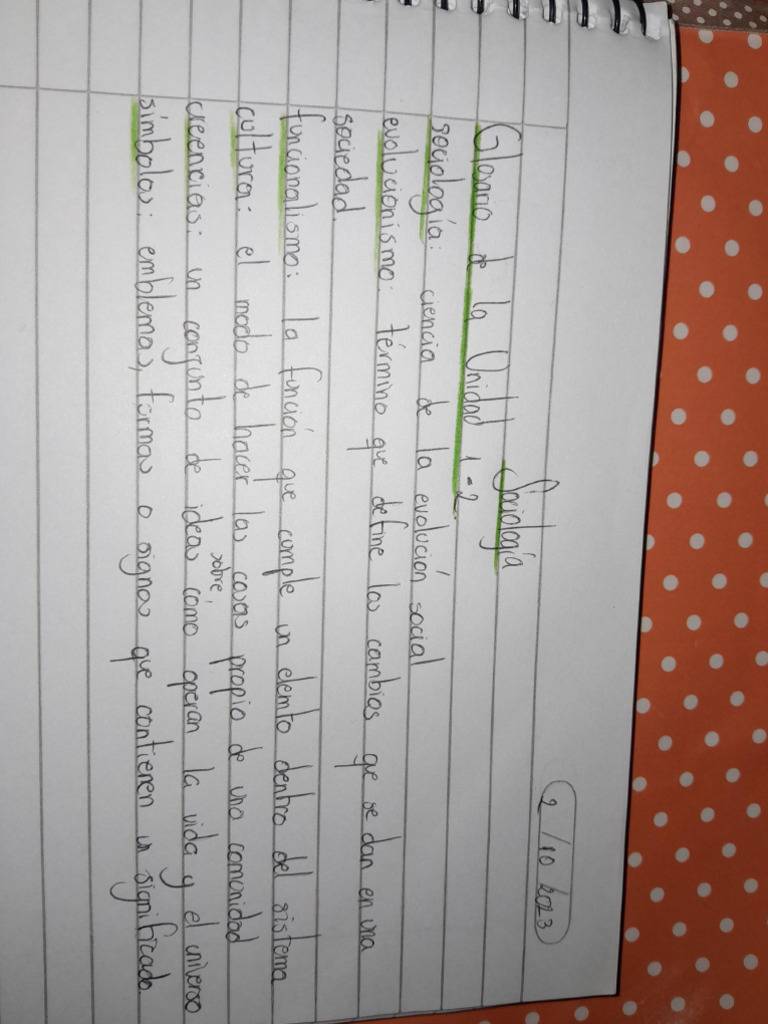 2/10/2023
Sociología
Glosario de la Unidad 1-2.
sociología: ciencia de la evolución social
evolucionismo: término que define los cambios que se dan en una
sociedad.
funcionalismo: la función que cumple un elemto dentro del sistema
cultura: el modo de hacer las cosas propio de una comunidad
creencias: un conjunto de ideas sobre, como operan la vida y el universo
símbolos: emblemas, formas o signos que contienen un significado.